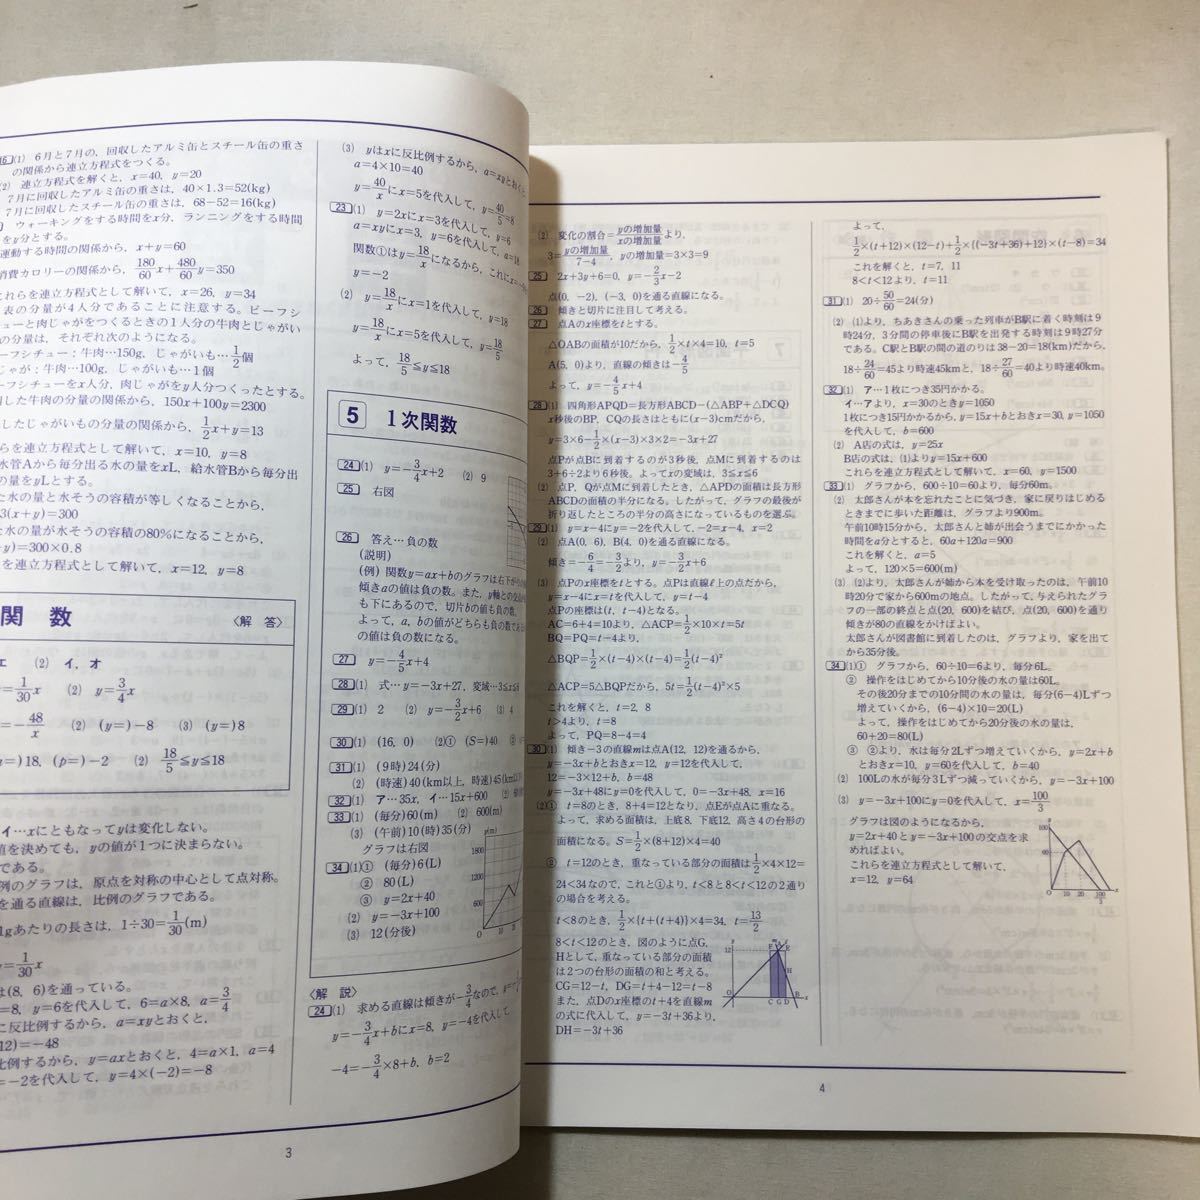 16 (1) 6月と7月の，回収したアルミ缶とスチール缶の重さ
の関係から連立方程式をつくる。
(2) 連立方程式を解くと，x=40, y=20
7月に回収したアルミ缶の重さは，40×1.3=52(kg)
7月に回収したスチール缶の重さは，68−52=16(kg)
ウォーキングをする時間をx分，ランニングをする時間
をy分とする。
運動する時間の関係から，x+y=60
消費カロリーの関係から，180/60 x+480/60 y=350
これらを連立方程式として解いて，x=26, y=34
表の分量が4人分であることに注意する。ビーフシ
チューと肉じゃがをつくるときの1人分の牛肉とじゃがい
の分量は，それぞれ次のようになる。
ーフシチュー：牛肉…150g，じゃがいも…1/2個
じゃが：牛肉…100g，じゃがいも…1個
ーフシチューをx人分，肉じゃがをy人分つくったとする。
用した牛肉の分量の関係から，150x+100y=2300
したじゃがいもの分量の関係から，1/2 x+y=13
らを連立方程式として解いて，x=10, y=8
水管Aから毎分出る水の量をxL，給水管Bから毎分出
の量をyLとする。
た水の量と水そうの容積が等しくなることから，
3(x+y)=300
た水の量が水そうの容積の80%になることから，
+y)=300×0.8
を連立方程式として解いて，x=12, y=8
関 数 〈解 答〉
エ (2) イ，オ
=1/30 x (2) y=3/4 x
=−48/x (2) (y=)−8 (3) (y=)8
=)18, (p=)−2 (2) 18/5≦y≦18
イ…xにともなってyは変化しない。
値を決めても，yの値が1つに決まらない。
である。
例のグラフは，原点を対称の中心として点対称。
を通る直線は，比例のグラフである。
1gあたりの長さは，1÷30=1/30(m)
y=1/30 x
は(8, 6)を通っている。
=8, y=6を代入して，6=a×8, a=3/4
に反比例するから，a=xyとおくと，
12)=−48
比例するから，y=axとおくと，4=a×1, a=4
=−2を代入して，y=4×(−2)=−8
(3) yはxに反比例するから，a=xyとおくと，
a=4×10=40
y=40/xにx=5を代入して，y=40/5=8
23 (1) y=2xにx=3を代入して，y=6
a=xyにx=3, y=6を代入して，a=18
関数①はy=18/xになるから，これにx=
y=−2
(2) y=18/xにx=1を代入して，y=18
y=18/xにx=5を代入して，y=18/5
よって，18/5≦y≦18
5 1次関数
24 (1) y=−3/4 x+2 (2) 9
25 右図
26 答え…負の数
(説明)
(例) 関数y=ax+bのグラフは右下が
傾きaの値は負の数。また，y軸との交点
も下にあるので，切片bの値も負の数。
よって，a, bの値がどちらも負の数であ
の値は負の数になる。
27 y=−4/5 x+4
28 (1) 式…y=−3x+27，変域…3≦x≦6
29 (1) 2 (2) y=−3/2 x+6 (3) 4
30 (1) (16, 0) (2)① (S=)40 ②
31 (1) (9時)24(分)
(2) (時速)40(km以上，時速)45(km以
32 (1) ア…35x，イ…15x+600 (2)
33 (1) (毎分)60(m) (2) 600(m)
(3) (午前)10(時)35(分)
グラフは右図
y(m)
1800
1200
600
O 10 20
34 (1)① (毎分)6(L)
② 80(L)
③ y=2x+40
(2) y=−3x+100
(3) 12(分後)
〈解 説〉
24 (1) 求める直線は傾きが−3/4なので，y=−
y=−3/4 x+bにx=8, y=−4を代入して，
−4=−3/4×8+b, b=2
3
(2) 変化の割合=yの増加量/xの増加量より，
3=yの増加量/7−4，yの増加量=3×3=9
25 2x+3y+6=0, y=−2/3 x−2
点(0, −2), (−3, 0)を通る直線になる。
26 傾きと切片に注目して考える。
27 点Aのx座標をtとする。
△OABの面積が10だから，1/2×t×4=10, t=5
A(5, 0)より，直線の傾きは−4/5
よって，y=−4/5 x+4
28 (1) 四角形APQD=長方形ABCD−(△ABP+△DCQ)
x秒後のBP, CQの長さはともに(x−3)cmだから，
y=3×6−1/2×(x−3)×3×2=−3x+27
点Pが点Bに到着するのが3秒後，点Mに到着するのは
3+6÷2より6秒後。よってxの変域は，3≦x≦6
(2) 点P, Qが点Mに到着したとき，△APDの面積は長方形
ABCDの面積の半分になる。したがって，グラフの最後が
折り返したところの半分の高さになっているものを選ぶ。
29 (1) y=x−4にy=−2を代入して，−2=x−4, x=2
(2) 点A(0, 6), B(4, 0)を通る直線になる。
傾き=−6/4=−3/2より，y=−3/2 x+6
(3) 点Pのx座標をtとする。点Pは直線ℓ上の点だから，
y=x−4にx=tを代入して，y=t−4
点Pの座標は(t, t−4)となる。
AC=6+4=10より，△ACP=1/2×10×t=5t
BQ=PQ=t−4より，
△BQP=1/2×(t−4)×(t−4)=1/2(t−4)²
△ACP=5△BQPだから，5t=1/2(t−4)²×5
これを解くと，t=2, 8
t>4より，t=8
よって，PQ=8−4=4
30 (1) 傾き−3の直線mは点A(12, 12)を通るから，
y=−3x+bとおきx=12, y=12を代入して，
12=−3×12+b, b=48
y=−3x+48にy=0を代入して，0=−3x+48, x=16
(2)① t=8のとき，8+4=12となり，点Eが点Aに重なる。
よって，求める面積は，上底8，下底12，高さ4の台形の
面積になる。S=1/2×(8+12)×4=40
② t=12のとき，重なっている部分の面積は1/2×4×12=
24<34なので，これと①より，t<8と8<t<12の2通り
の場合を考える。
t<8のとき，1/2×{t+(t+4)}×4=34, t=13/2
8<t<12のとき，図のように点G,
Hとして，重なっている部分の面積
は2つの台形の面積の和と考える。
CG=12−t, DG=t+4−12=t−8
また，点Dのx座標のt+4を直線m
の式に代入して，y=−3t+36より，
DH=−3t+36
12
F A E
H
O C G D B
よって，
1/2×(t+12)×(12−t)+1/2×{(−3t+36)+12}×(t−8)=34
これを解くと，t=7, 11
8<t<12より，t=11
31 (1) 20÷50/60=24(分)
(2) (1)より，ちあきさんの乗った列車がB駅に着く時刻は9
時24分，3分間の停車後にB駅を出発する時刻は9時27分
である。C駅とB駅の間の道のりは38−20=18(km)だから，
18÷24/60=45より時速45kmと，18÷27/60=40より時速40km。
32 (1) ア…1枚につき35円かかる。
イ…アより，x=30のときy=1050
1枚につき15円かかるから，y=15x+bとおきx=30, y=1050
を代入して，b=600
(2) A店の式は，y=25x
B店の式は，(1)よりy=15x+600
これらを連立方程式として解いて，x=60, y=1500
33 (1) グラフから，600÷10=60より，毎分60m。
(2) 太郎さんが本を忘れたことに気づき，家に戻りはじめる
ときまでに歩いた距離は，グラフより900m。
午前10時15分から，太郎さんと姉が出会うまでにかかった
時間をa分とすると，60a+120a=900
これを解くと，a=5
よって，120×5=600(m)
(3) (2)より，太郎さんが姉から本を受け取ったのは，午前10
時20分で家から600mの地点。したがって，与えられたグラ
フの一部の終点と点(20, 600)を結び，点(20, 600)を通り
傾きが80の直線をかけばよい。
太郎さんが図書館に到着したのは，グラフより，家を出て
から35分後。
34 (1)① グラフから，60÷10=6より，毎分6L。
② 操作をはじめてから10分後の水の量は60L。
その後20分までの10分間の水の量は，毎分(6−4)Lずつ
増えていくから，(6−4)×10=20(L)
よって，操作をはじめてから20分後の水の量は，
60+20=80(L)
③ ②より，水は毎分2Lずつ増えていくから，y=2x+b
とおきx=10, y=60を代入して，b=40
(2) 100Lの水が毎分3Lずつ減っていくから，y=−3x+100
(3) y=−3x+100にy=0を代入して，x=100/3
グラフは図のようになるから，
y=2x+40とy=−3x+100の交点を求
めればよい。
これらを連立方程式として解いて，
x=12, y=64
100
60
O 10 20 100/3
4